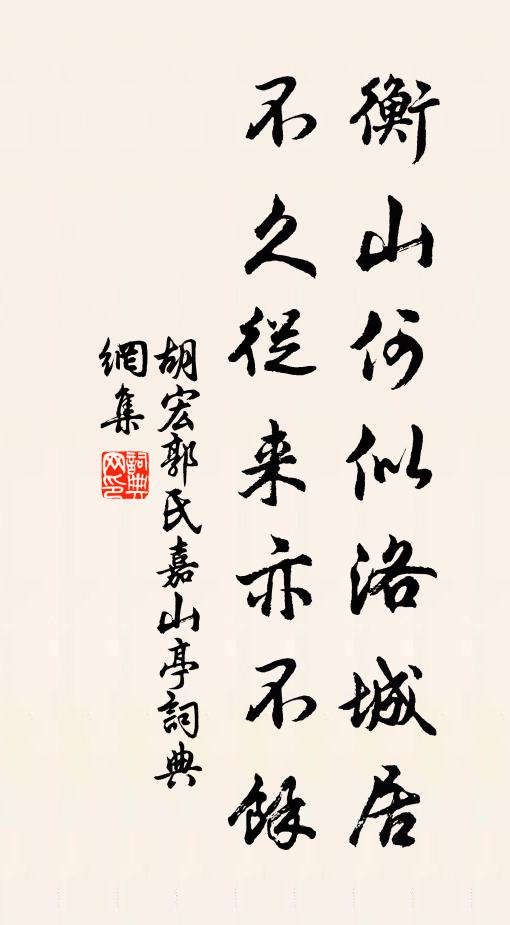 衡山何似洛城居
不久從来亦不餘
胡宏郭氏嘉山亭詞典
網集
詞典
网印